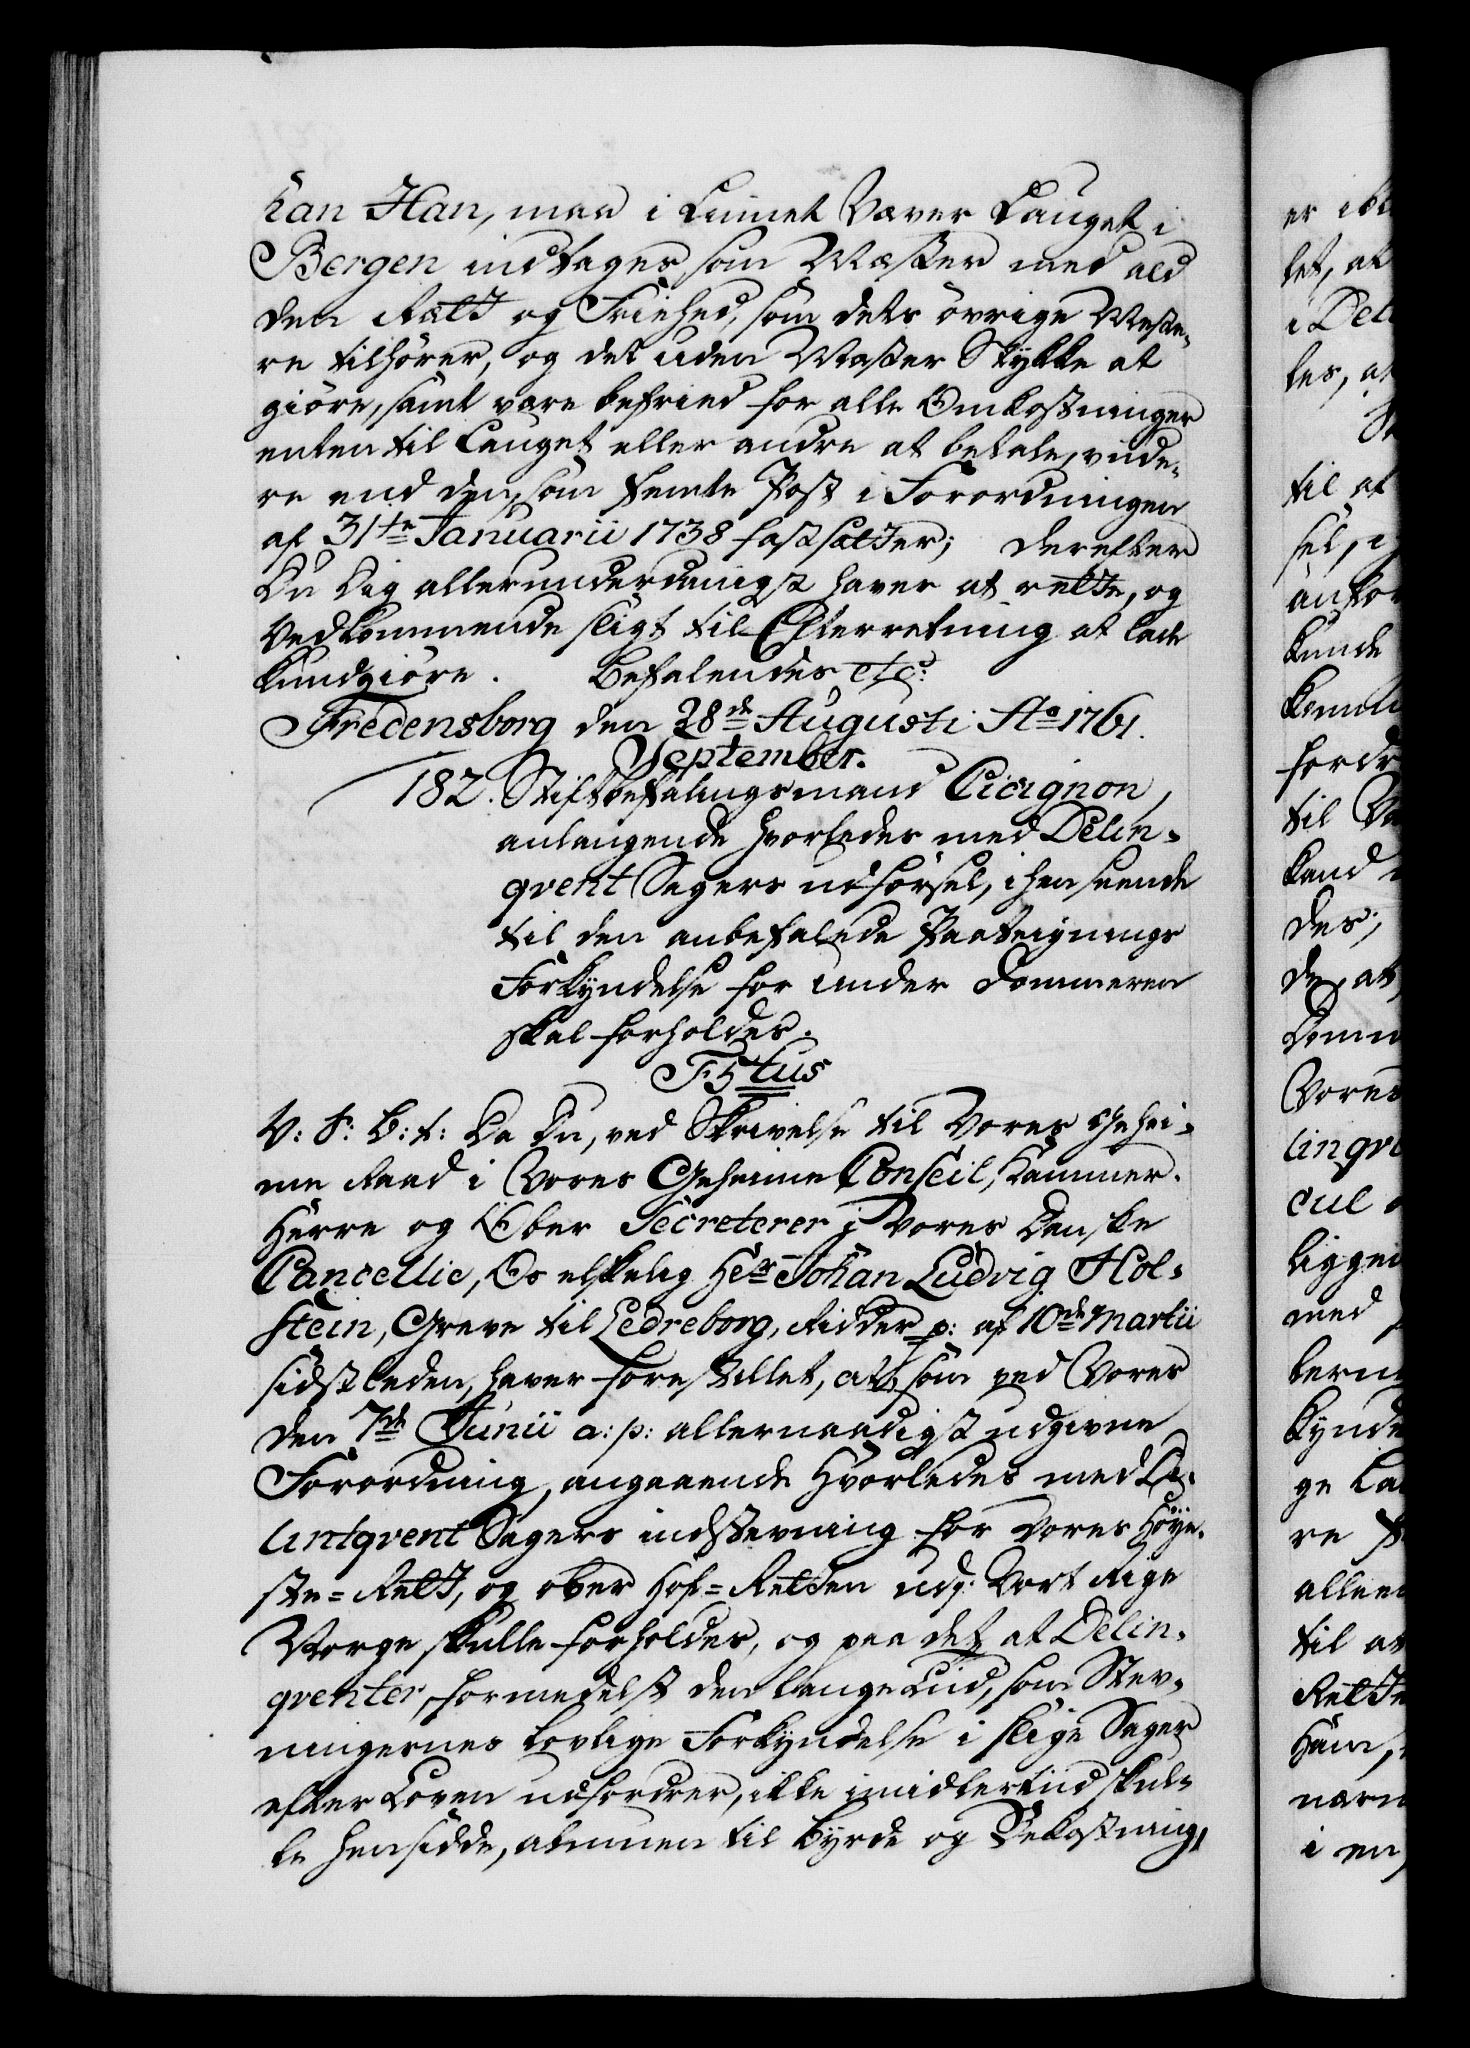 kan Han, maa i Linnet Væver Lauget i
Bergen indtages som Mæster med ald
den Rætt og Friehed, som dets övrige Mæste-
re tilhører, og det uden Mæster Stykke at
giöre, samt være befried for alle Omkostninger
enten til Lauget eller andre at betale, viide-
re end den, som femte Post i Forordningen
af 31te Januarii 1738 fastsætter; derefter
Du Dig allerunderdanigst haver at rette, og
Vedkommende sligt til Efterretning at lade
kundgiöre. Befalendes etc:
Fredensborg den 28de Augusti Ao 1761.
September.
182. Stiftbefalingsmand Cicignon,
anlangende hvorledes med Delin-
qvent Sagers udførsel, i henseende
til den anbefalede Paateignings
Forkyndelse for under Dommeren
skal forholdes.
F5tus
V: S: B: t: Da Du, ved Skrivelse til Vores Gehei-
me Raad i Vores Geheime Conseil, Kammer-
Herre og Ober Secreterer i Vores Danske
Cancellie, Os elskelig Hr Johan Ludvig Hol-
stein, Greve til Ledreborg, Ridder p: af 10de Martii
sidstleden, haver forestillet, at, som ved Vores
den 7de Junii a: p: allernaadigst udgivne
Forordning, angaaende Hvorledes med De-
lintqvent Sagers indstevning for Vores Höye-
ste-Rett, og ober Hof-Retten udj Vort Rige
Norge skulle forholdes, og paa det at Delin-
qventer, formedelst den lange Tiid, som Stev-
ningernes lovlige Forkyndelse i slige Sager
efter Loven udfordrer, ikke imidlertiid skul-
le hensidde, almuen til Byrde og Bekostning,